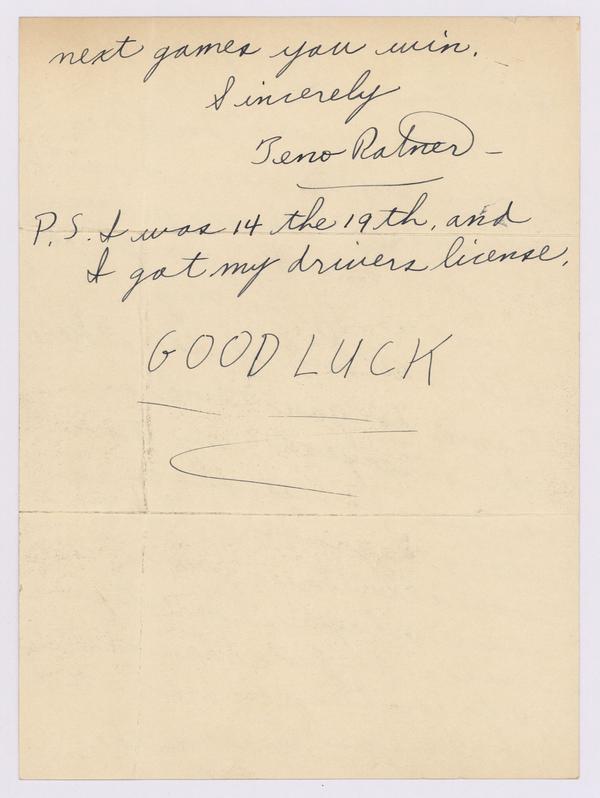 next games you win.
Sincerely
Teno Ratner
P.S. I was 14 the 19th, and
I got my drivers license.
GOOD LUCK